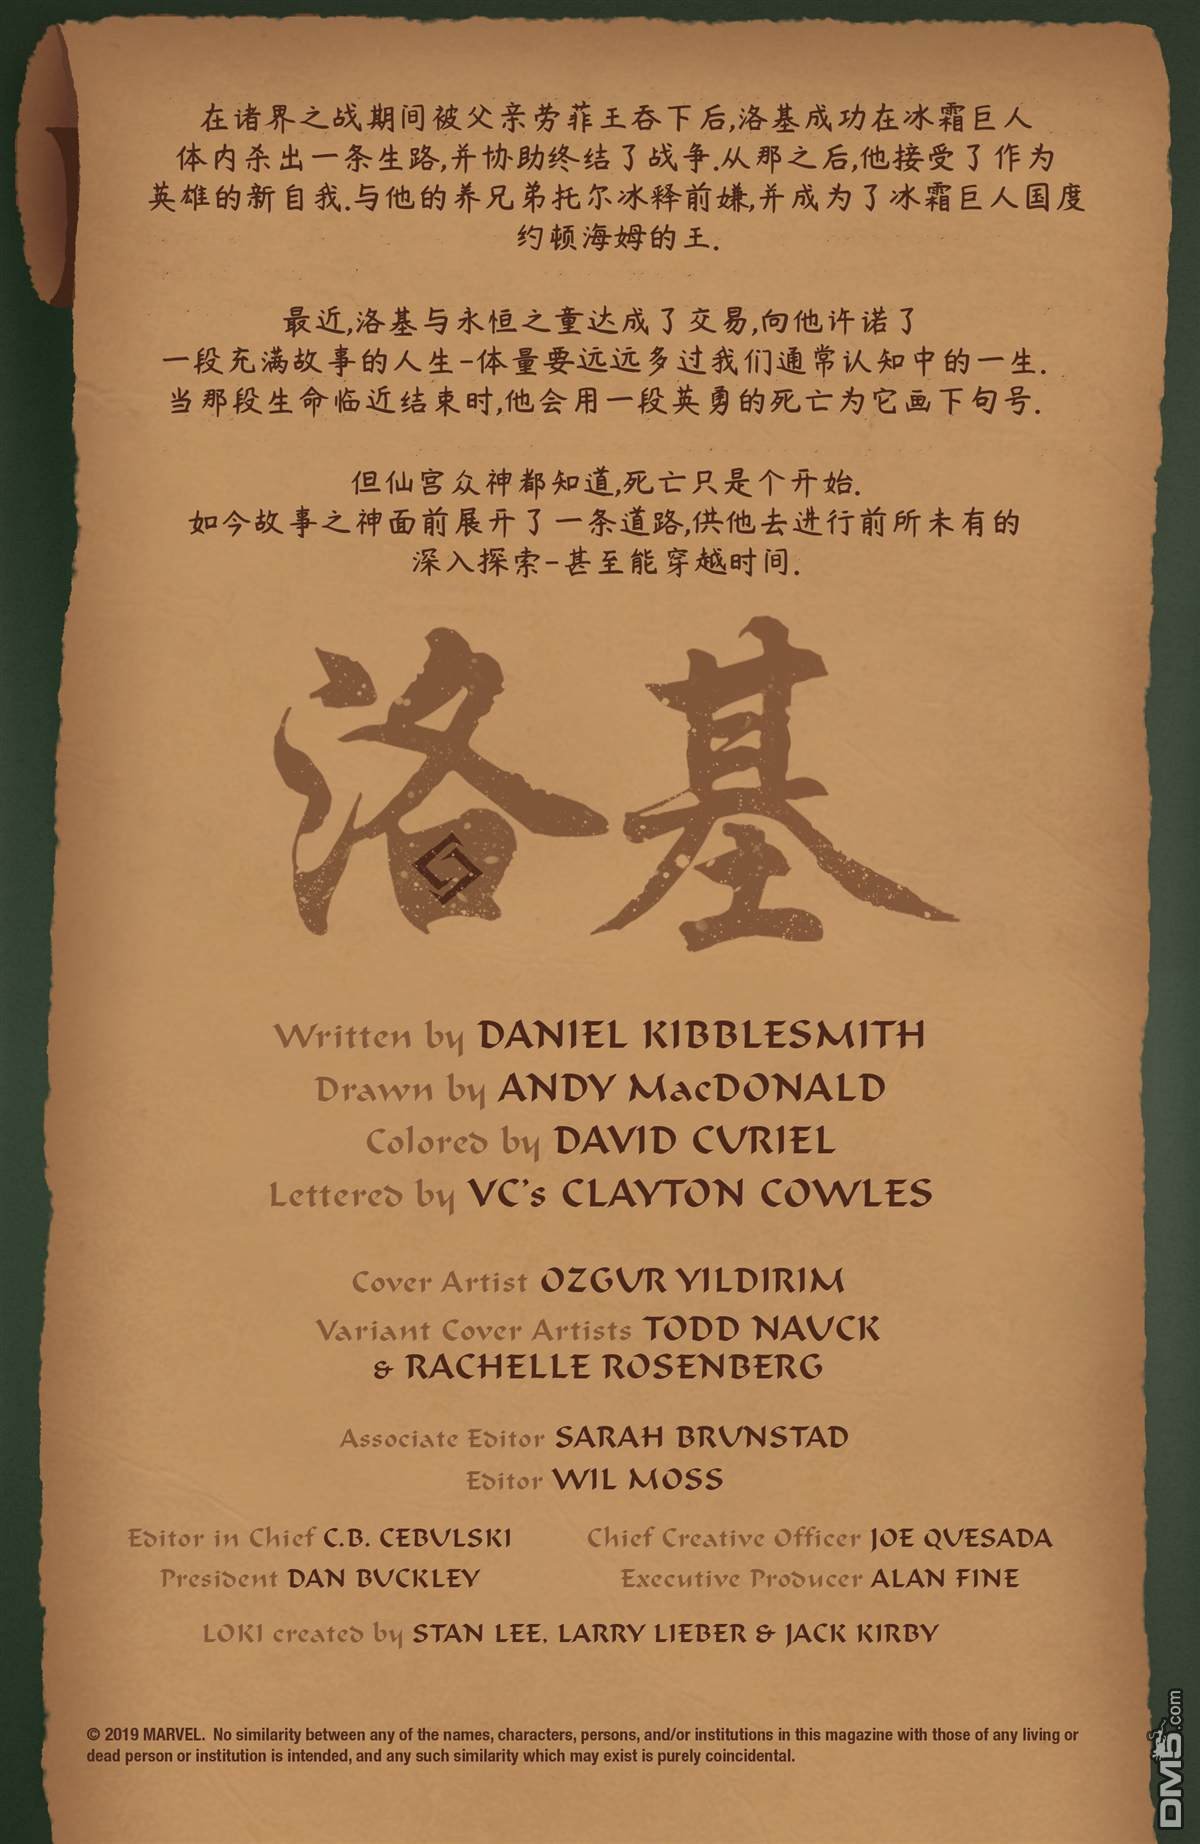 在诸界之战期间被父亲劳菲王吞下后,洛基成功在冰霜巨人
体内杀出一条生路,并协助终结了战争.从那之后,他接受了作为
英雄的新自我.与他的养兄弟托尔冰释前嫌,并成为了冰霜巨人国度
约顿海姆的王.
最近,洛基与永恒之童达成了交易,向他许诺了
一段充满故事的人生-体量要远远多过我们通常认知中的一生.
当那段生命临近结束时,他会用一段英勇的死亡为它画下句号.
但仙宫众神都知道,死亡只是个开始.
如今故事之神面前展开了一条道路,供他去进行前所未有的
深入探索-甚至能穿越时间.
洛基
Written by DANIEL KIBBLESMITH
Drawn by ANDY MacDONALD
Colored by DAVID CURIEL
Lettered by VC's CLAYTON COWLES
Cover Artist OZGUR YILDIRIM
Variant Cover Artists TODD NAUCK
& RACHELLE ROSENBERG
Associate Editor SARAH BRUNSTAD
Editor WIL MOSS
Editor in Chief C.B. CEBULSKI
Chief Creative Officer JOE QUESADA
President DAN BUCKLEY
Executive Producer ALAN FINE
LOKI created by STAN LEE, LARRY LIEBER & JACK KIRBY
© 2019 MARVEL. No similarity between any of the names, characters, persons, and/or institutions in this magazine with those of any living or
dead person or institution is intended, and any such similarity which may exist is purely coincidental.
DM5.com